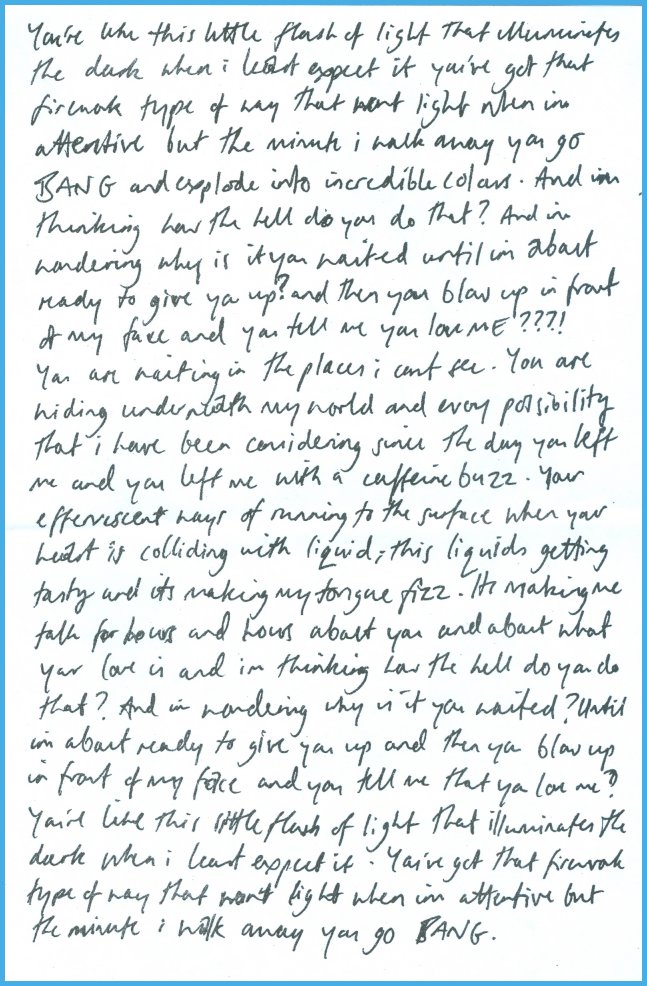 You're like this little flash of light that illuminates
the dark when i least expect it you've got that
firework type of way that wont light when im
attentive but the minute i walk away you go
BANG and explode into incredible colours. And im
thinking how the hell do you do that? And im
wondering why is it you waited until im about
ready to give you up? and then you blow up in front
of my face and you tell me you love ME???!
You are waiting in the places i cant see. You are
hiding underneath my world and every possibility
that i have been considering since the day you left
me and you left me with a caffeine buzz. Your
effervescent ways of running to the surface when your
heart is colliding with liquid, this liquids getting
tasty and its making my tongue fizz. Its making me
talk for hours and hours about you and about what
your love is and im thinking how the hell do you do
that? And im wondering why is it you waited? Until
im about ready to give you up and then you blow up
in front of my face and you tell me that you love me?
You're like this little flash of light that illuminates the
dark when i least expect it. You've got that firework
type of way that won't light when im attentive but
the minute i walk away you go BANG.